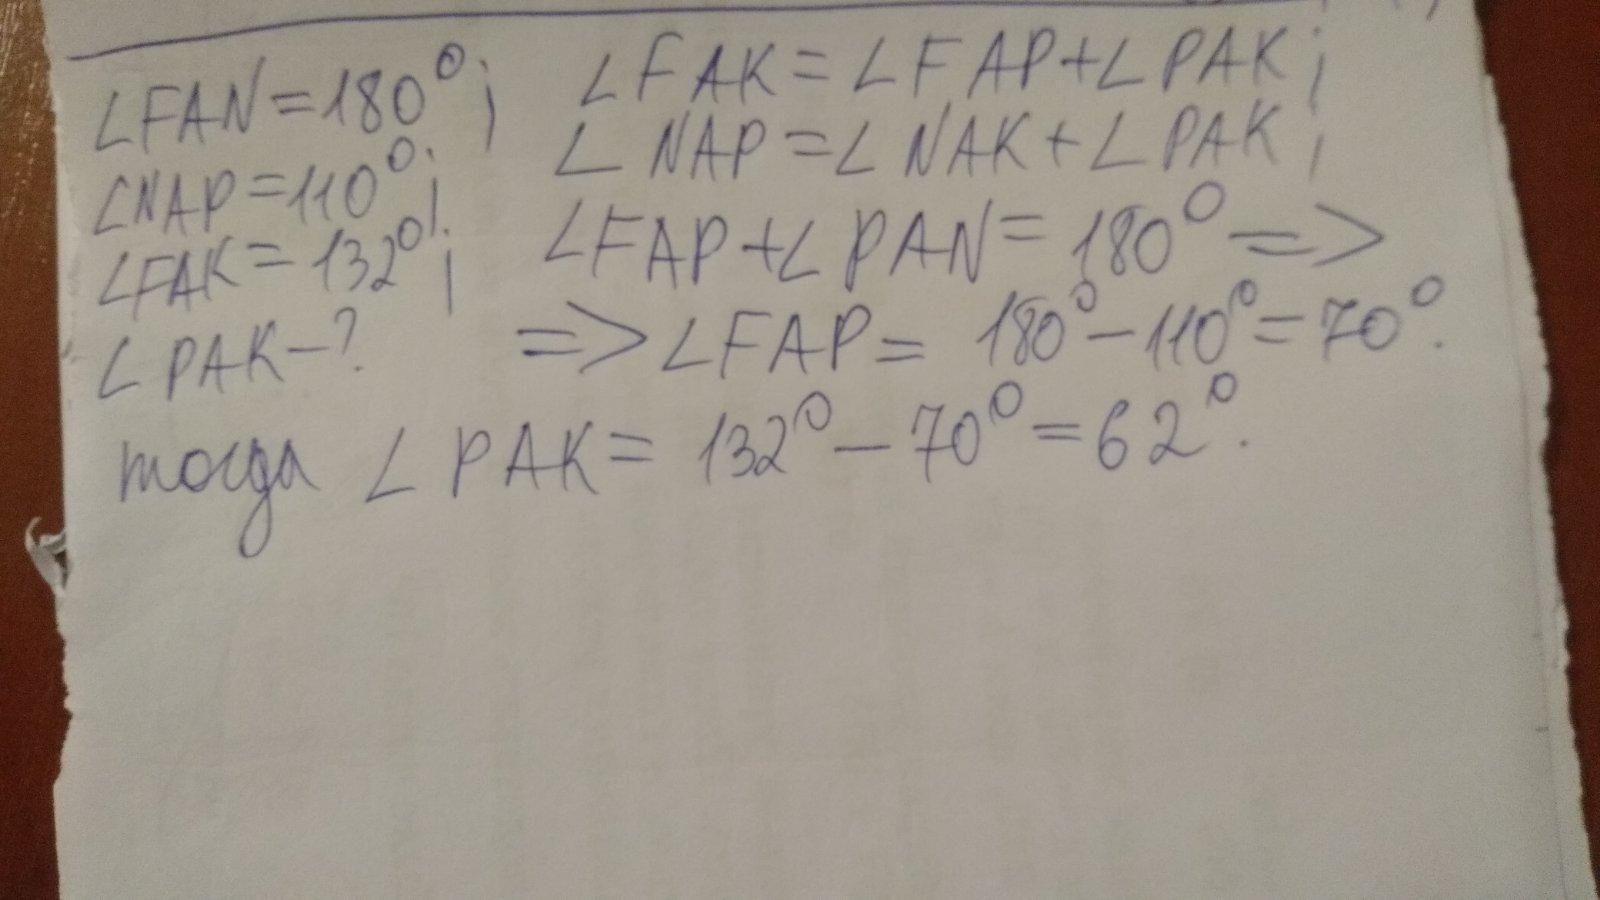 ∠FAN=180°;
∠NAP=110°;
∠FAK=132°;
∠PAK-?
∠FAK=∠FAP+∠PAK;
∠NAP=∠NAK+∠PAK;
∠FAP+∠PAN=180°=>
=>∠FAP=180°-110°=70°.
тогда ∠PAK=132°-70°=62°.